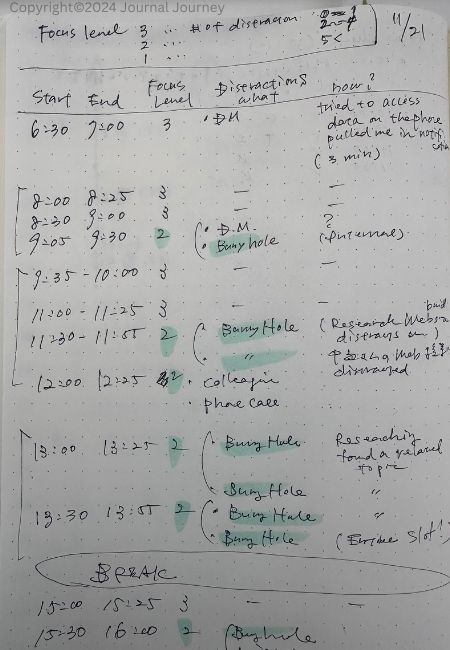 Copyright©2024 Journal Journey
Focus level 3 ... # of distraction 0=1
2 ... 2=4
1 ... 5<
11/21
Start End Focus Level Distractions what how?
6:30 7:00 3 • DM tried to access
data on the phone
pulled me in notification
(3 min)
8:00 8:25 3 — —
8:30 9:00 3 — —
9:05 9:30 2 • D.M. ?
• Bunny hole (internal)
9:35 - 10:00 3 — —
11:00 - 11:25 3 — —
11:30 - 11:55 2 Bunny Hole (Research Website
• " distracted
12:00 12:25 2 • colleague
• phone call
13:00 13:25 2 • Bunny Hole Researching
found a related
topic
• Bunny Hole "
13:30 13:55 2 • Bunny Hole "
• Bunny Hole
BREAK
15:00 15:25 3 — —
15:30 16:00 2 Bunny hole